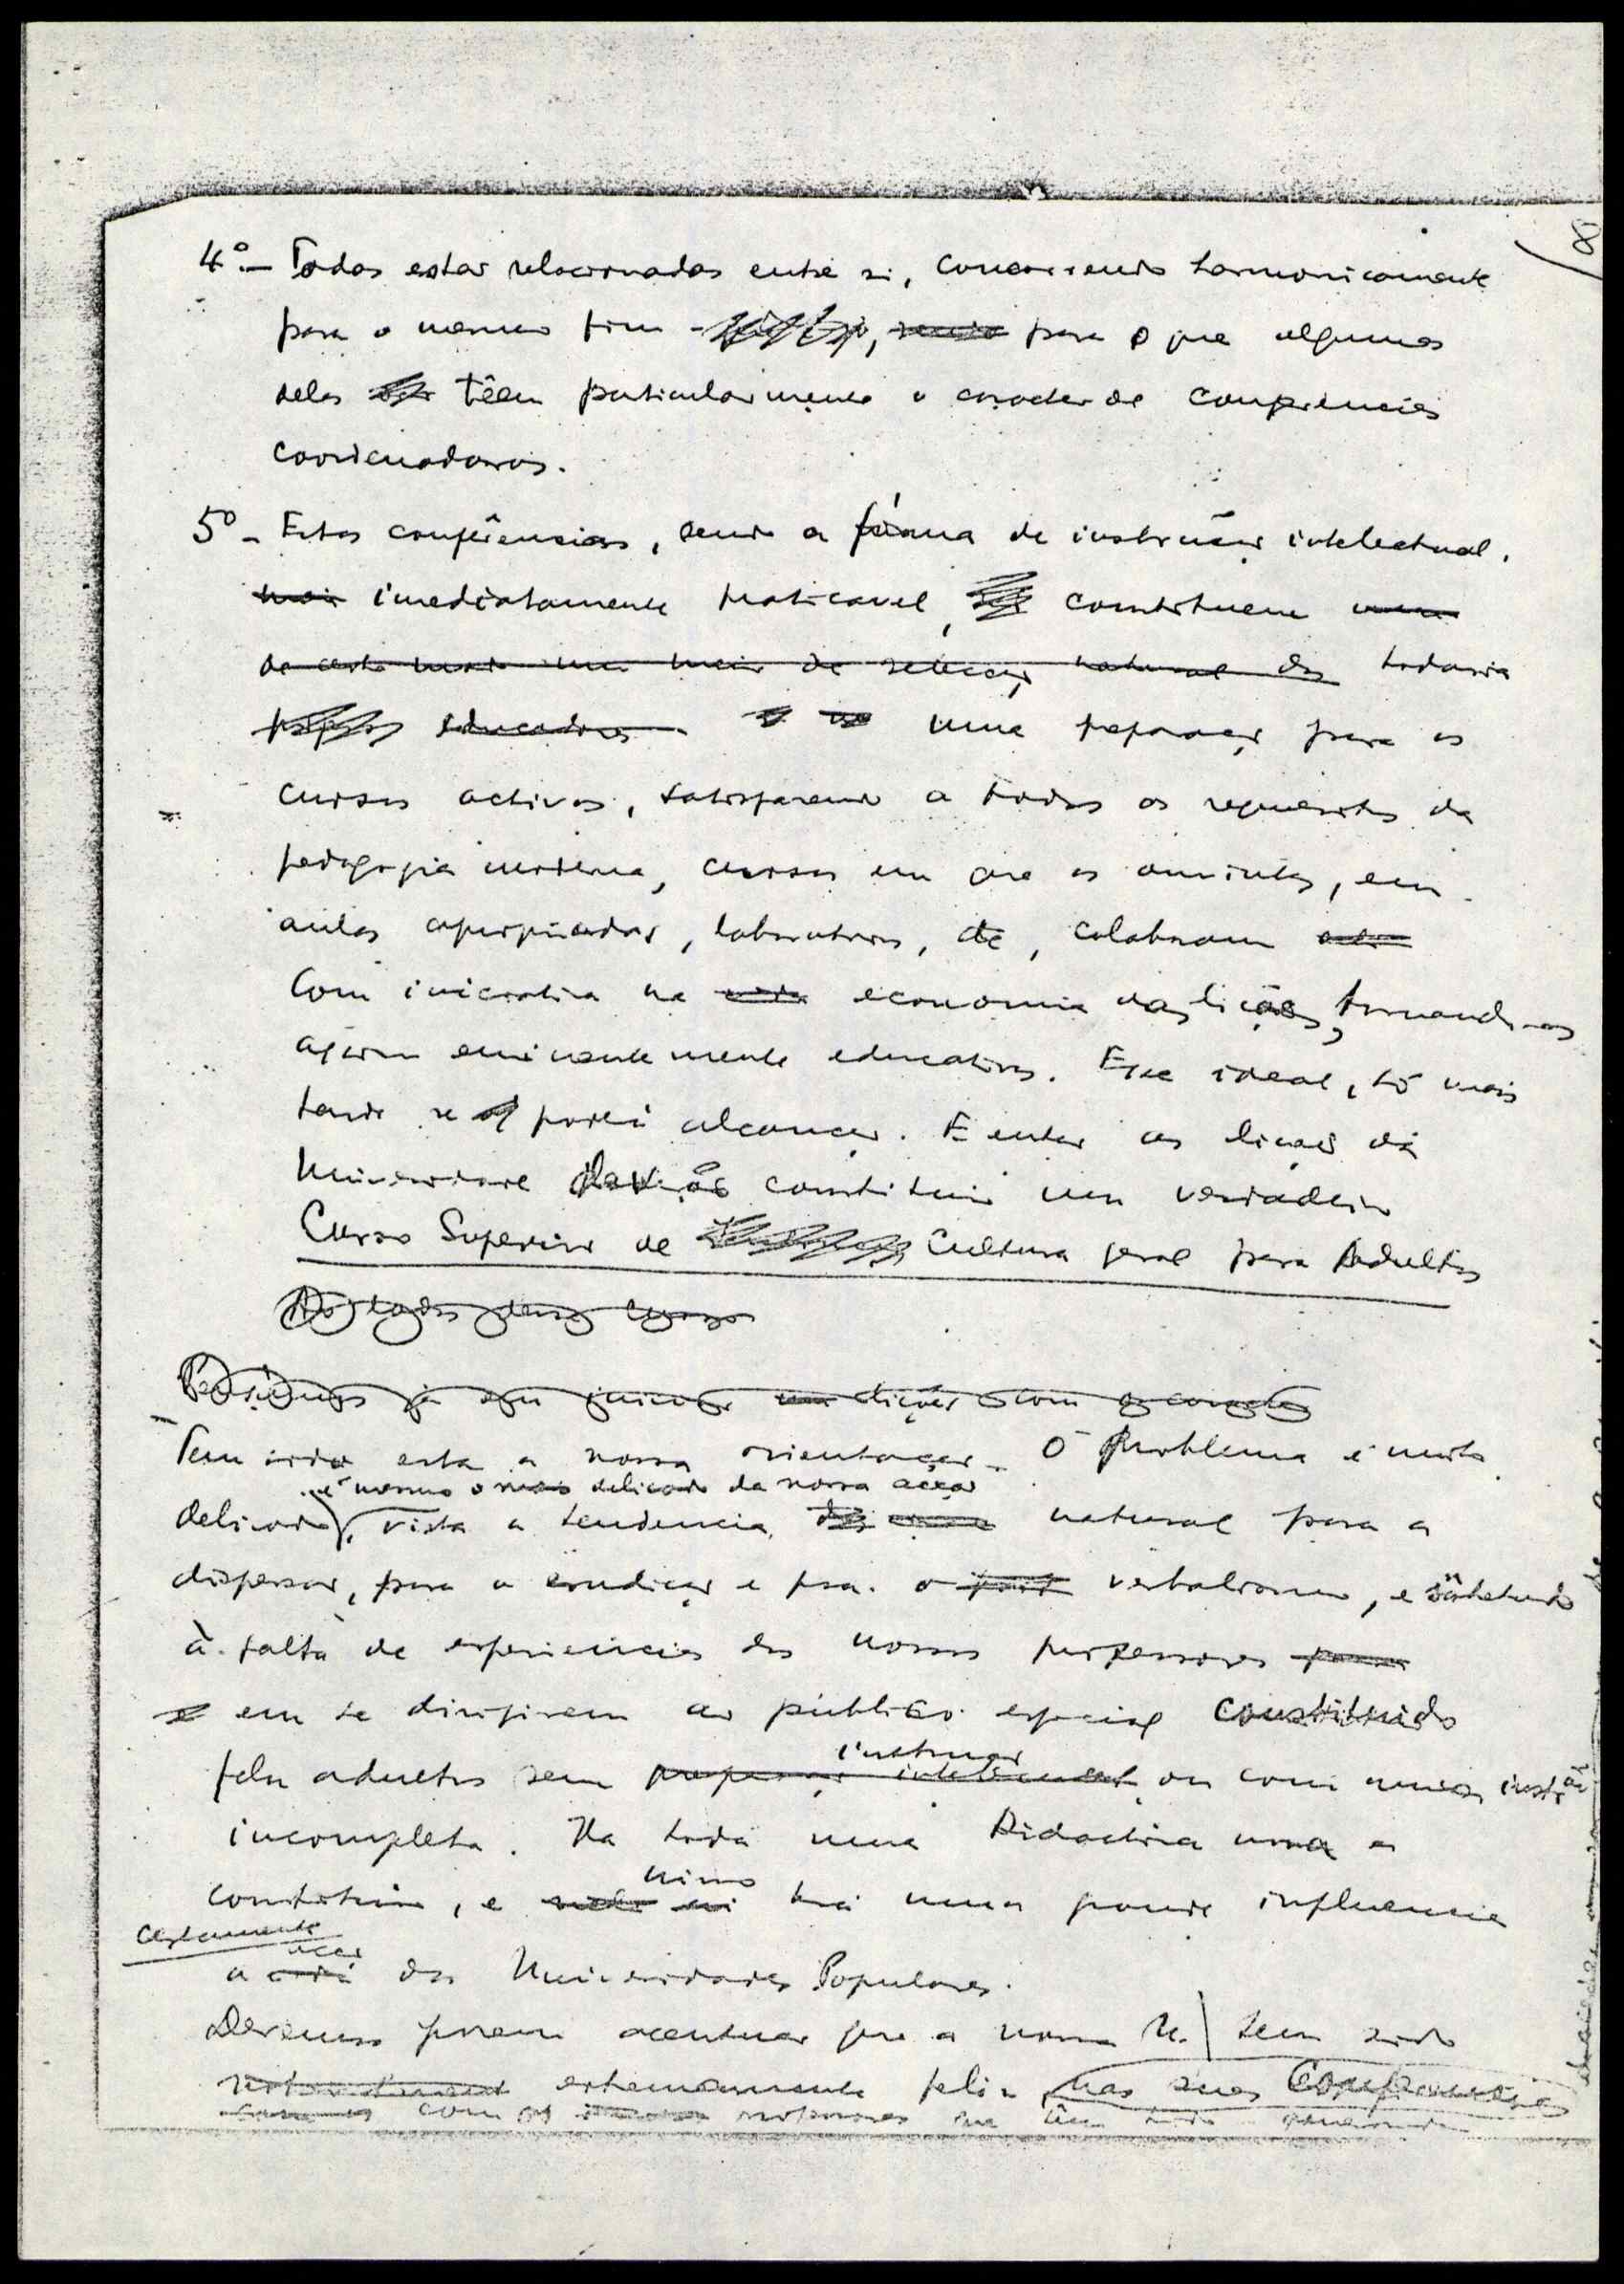 8
4º — Todas estão relacionadas entre si, concorrendo harmonicamente
para o mesmo fim para o que algumas
delas têem particularmente o caracter de conferencias
coordenadoras.
5º - Estas conferências, sendo a fórma de instrução intelectual,
mais imediatamente praticavel, constituem uma
de certo modo um meio de selecção natural dos todavia
educadores uma preparação para os
cursos activos, satisfazendo a todos os requesitos da
pedagogia moderna, cursos em que os ouvintes, em
aulas apropriadas, laboratorios, etc, colaboram
com iniciativa na vida economia das lições, tornando-as
assim eminentemente educativas. Esse ideal, só mais
tarde se poderá alcançar. E então as lições da
Universidade deverão constituir um verdadeiro
Curso Superior de Cultura geral para Adultos
desse curso
já lições com
Tem sido esta a nossa orientação. O problema é muito
é mesmo o mais delicado da nossa acção
delicado, vista a tendencia natural para a
dispersão, para a erudição e para o verbalismo, e sobretudo
à falta de experiencia dos nossos professores
em se dirigirem ao público especial constituido
instrução
pelos adultos sem preparação intelectual ou com uma instrução
incompleta. Ha toda uma Didactica nova a
nisso
constituir, e há uma grande influencia
certamente
acção
a das Universidades Populares.
Devemos porem acentuar que a nossa U. tem sido
extremamente feliz nas suas Conferencias
com os professores que têm sido